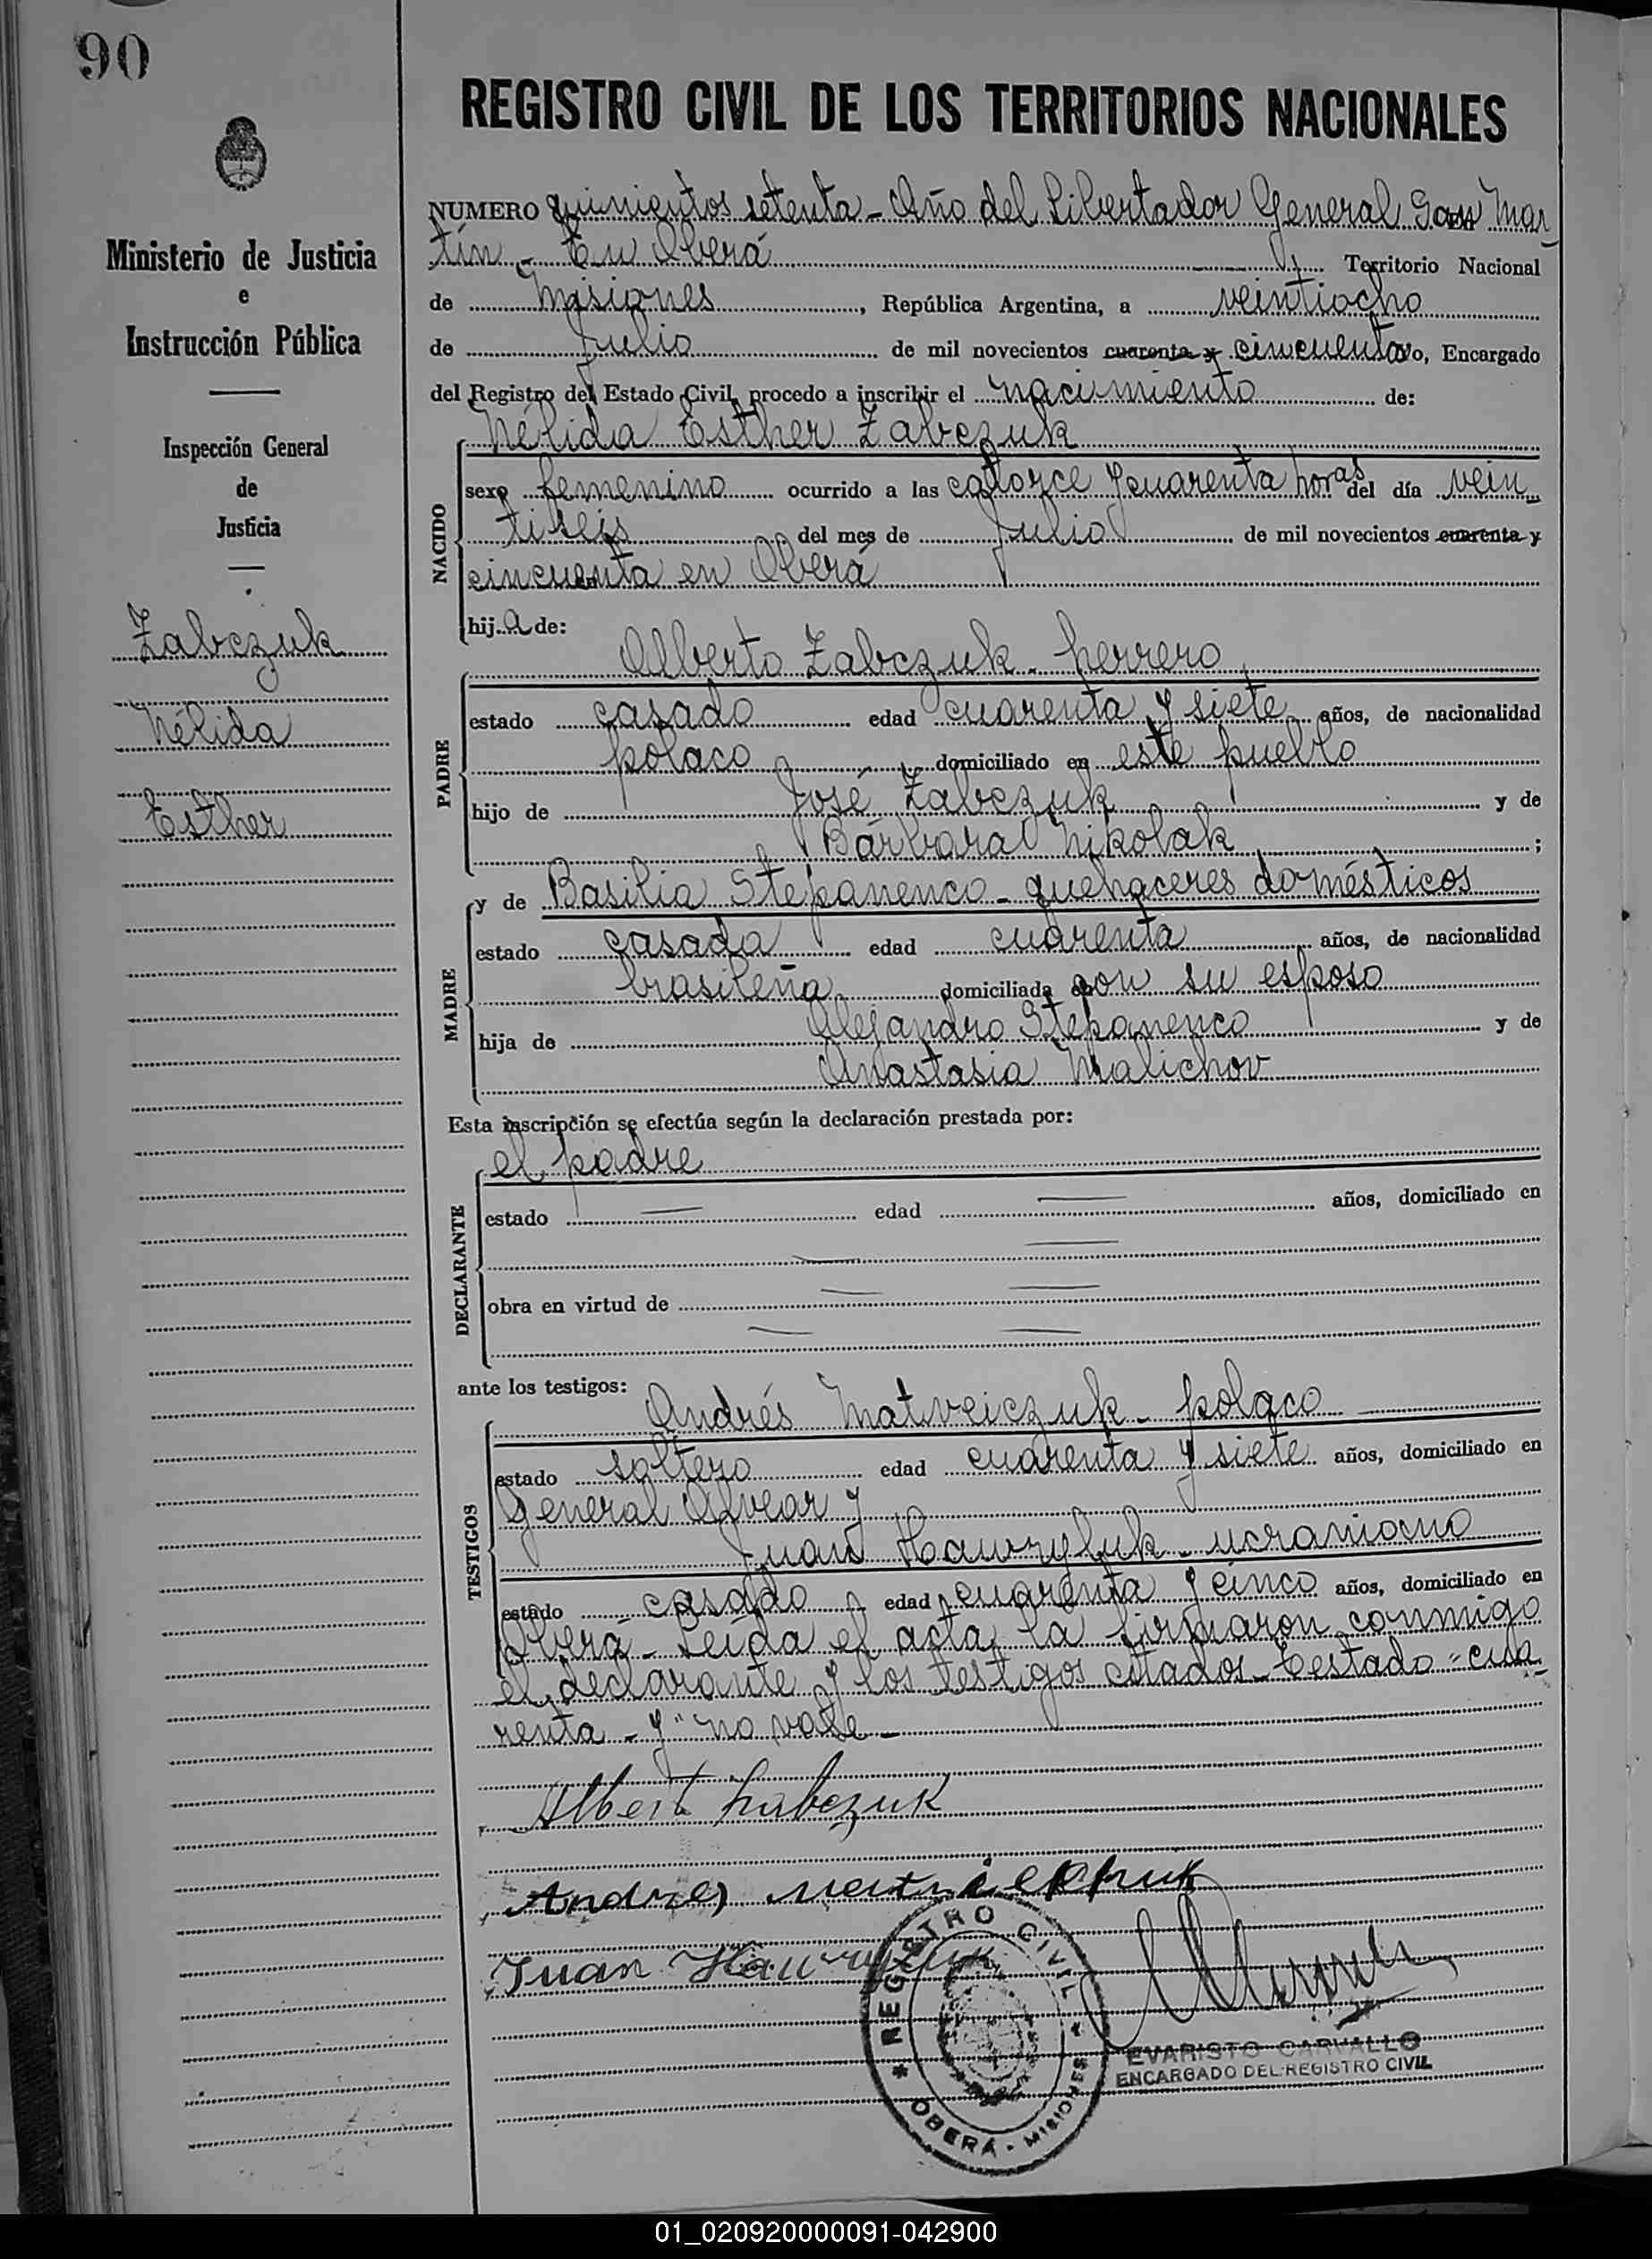 90
REGISTRO CIVIL DE LOS TERRITORIOS NACIONALES
Ministerio de Justicia
e
Instrucción Pública
Inspección General
de
Justicia
Zabczuk
Nélida
Esther
NUMERO quinientos setenta - Año del Libertador General San Mar
tín - En Oberá Territorio Nacional
de Misiones, República Argentina, a veintiocho
de Julio de mil novecientos cuarenta y cincuenta yo, Encargado
del Registro del Estado Civil, procedo a inscribir el nacimiento de:
Nélida Esther Zabczuk
NACIDO
sexo femenino ocurrido a las catorce y cuarenta horas del día vein
tiseis del mes de Julio de mil novecientos cuarenta y
cincuenta en Oberá
hija de:
PADRE
Alberto Zabczuk - herrero
estado casado edad cuarenta y siete años, de nacionalidad
polaco domiciliado en este pueblo
hijo de José Zabczuk y de
Bárbara Nikolak;
MADRE
y de Basilia Stepanenco - quehaceres domésticos
estado casada edad cuarenta años, de nacionalidad
brasileña domiciliada con su esposo
hija de Alejandro Stepanenco y de
Anastasia Malichov
Esta inscripción se efectúa según la declaración prestada por:
DECLARANTE
el padre
estado — edad — años, domiciliado en
obra en virtud de —
ante los testigos:
TESTIGOS
Andrés Matveiczuk - polaco
estado soltero edad cuarenta y siete años, domiciliado en
General Alvear y
Juan Hawryluk - ucraniano
estado casado edad cuarenta y cinco años, domiciliado en
Oberá - Leída el acta, la firmaron conmigo
el declarante y los testigos citados - Testado "cua
renta - y" no vale -
Albert Zabczuk
Andres
Juan Hawryluk
REGISTRO CIVIL
OBERÁ - MISIONES
EVARISTO CARVALLO
ENCARGADO DEL REGISTRO CIVIL
01_020920000091-042900